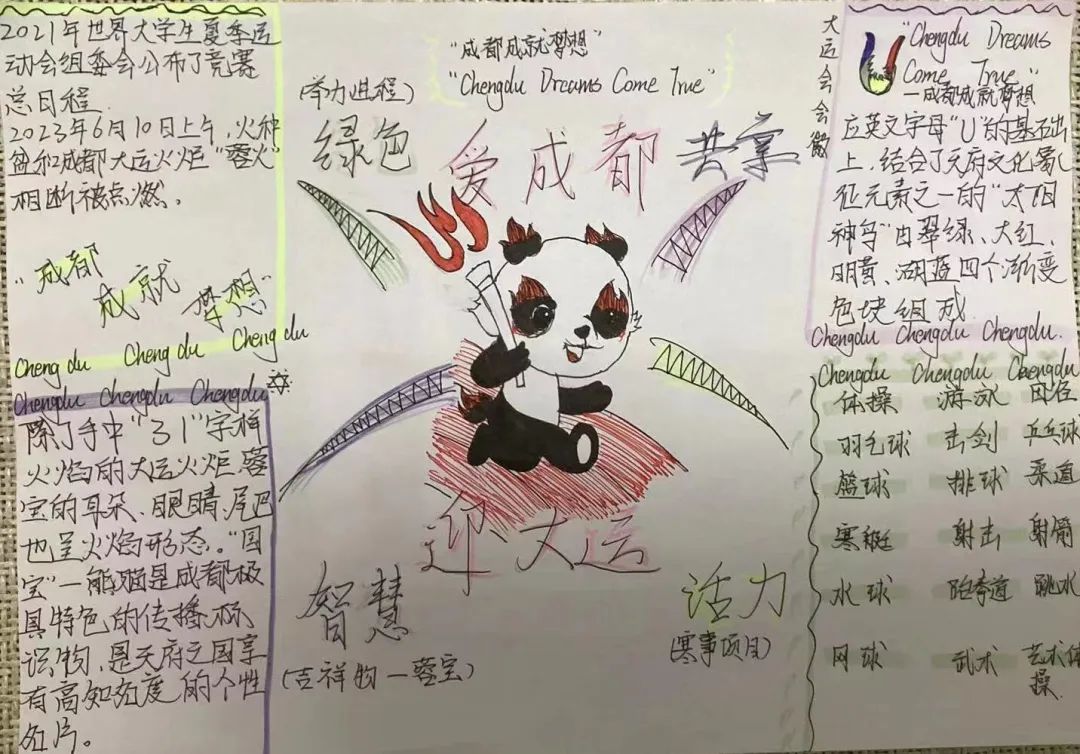 2021年世界大学生夏季运
动会组委会公布了竞赛
总日程.
2023年6月10日上午,火种
盆和成都大运火炬"蓉火"
相断被点燃。
"成都
成就
梦想"
Cheng du Cheng du Cheng du
Chengdu Chengdu Chengdu
除了手中"31"字样
火焰的大运火炬,蓉
宝的耳朵、眼睛、尾巴
也呈火焰形态。"国
宝"一熊猫是成都极
具特色的传播标
识物,是天府之国享
有高知名度的个性
名片。
"成都成就梦想"
(举办进程)
"Chengdu Dreams Come True"
绿色
爱成都
共享
迎大运
智慧
(吉祥物一蓉宝)
活力
(赛事项目)
大运会会徽
"Chengdu Dreams
Come True"
一成都成就梦想
应英文字母"U"的基础
上,结合了天府文化象
征元素之一的"太阳
神鸟"由翠绿、大红、
明黄、湖蓝四个渐变
色块组成
Chengdu Chengdu Chengdu.
Chengdu Chengdu Chengdu
体操 游泳 田径
羽毛球 击剑 乒乓球
篮球 排球 柔道
赛艇 射击 射箭
水球 跆拳道 跳水
网球 武术 艺术体
操.